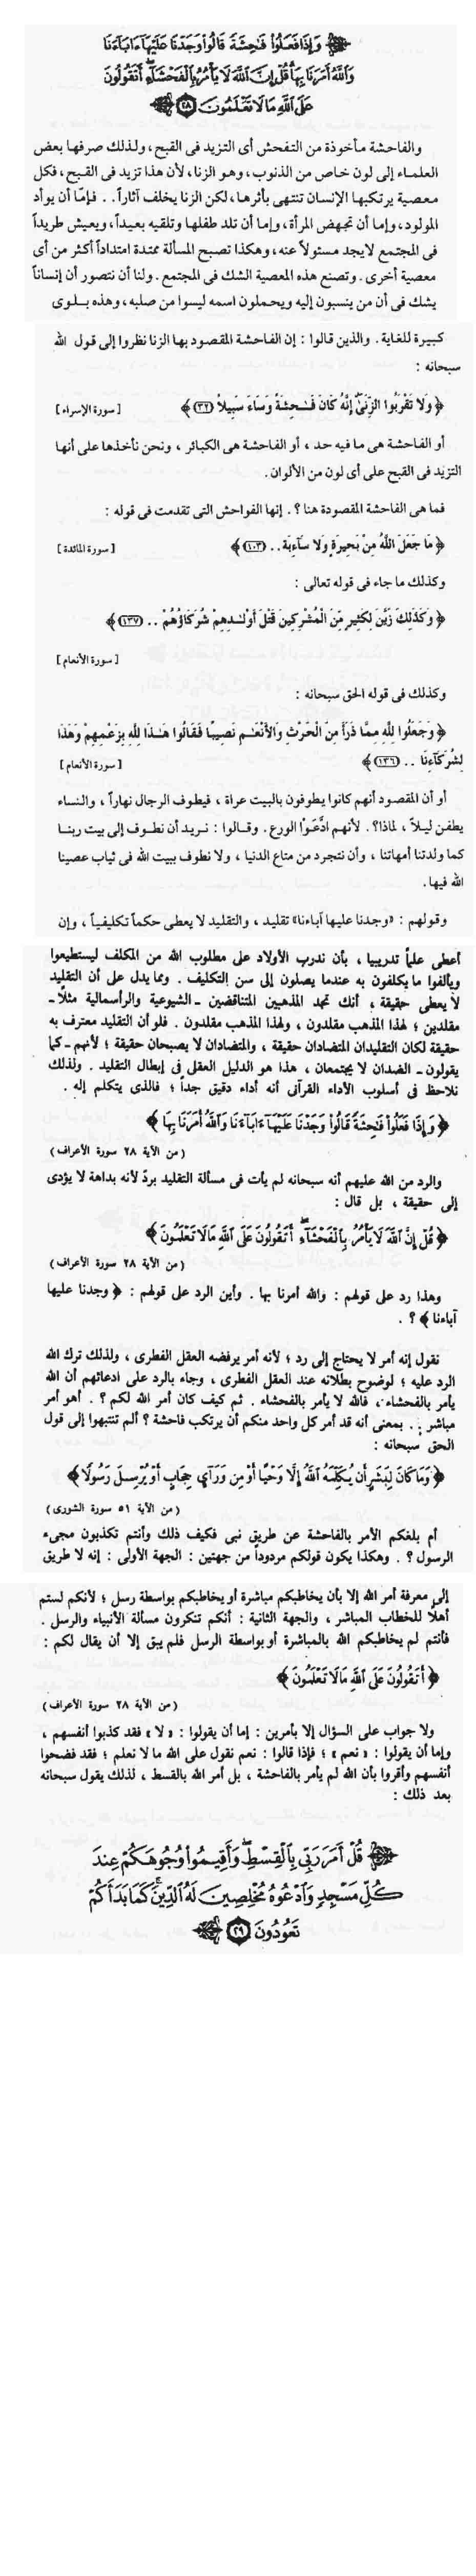 وَإِذَا فَعَلُوا۟ فَـٰحِشَةً قَالُوا۟ وَجَدْنَا عَلَيْهَآ ءَابَآءَنَا
وَٱللَّهُ أَمَرَنَا بِهَا قُلْ إِنَّ ٱللَّهَ لَا يَأْمُرُ بِٱلْفَحْشَآءِ أَتَقُولُونَ
عَلَى ٱللَّهِ مَا لَا تَعْلَمُونَ ٢٨
والفاحشة مأخوذة من التفحش أى التزيد فى القبح، ولذلك صرفها بعض
العلماء إلى لون خاص من الذنوب، وهو الزنا، لأن هذا تزيد فى القبح، فكل
معصية يرتكبها الإنسان تنتهى بأثرها، لكن الزنا يخلف آثاراً.. فإمّا أن يوأد
المولود، وإما أن تجهض المرأة، وإما أن تلد طفلها وتلقيه بعيداً، ويعيش طريداً
فى المجتمع لايجد مسئولاً عنه، وهكذا تصبح المسألة ممتدة امتداداً أكثر من أى
معصية أخرى. وتصنع هذه المعصية الشك فى المجتمع. ولنا أن نتصور أن إنساناً
يشك فى أن من ينسبون إليه ويحملون اسمه ليسوا من صلبه، وهذه بلوى
كبيرة للغاية. والذين قالوا : إن الفاحشة المقصود بها الزنا نظروا إلى قول الله
سبحانه :
﴿ وَلَا تَقْرَبُوا الزِّنَىٰ إِنَّهُ كَانَ فَـٰحِشَةً وَسَاءَ سَبِيلاً ٣٢ ﴾ [ سورة الإسراء ]
أو الفاحشة هى ما فيه حد ، أو الفاحشة هى الكبائر ، ونحن نأخذها على أنها
التزيد فى القبح على أى لون من الألوان.
فما هى الفاحشة المقصودة هنا ؟ . إنها الفواحش التى تقدمت فى قوله :
﴿ مَا جَعَلَ اللَّهُ مِنْ بَحِيرَةٍ وَلا سَآئِبَة.. ١٠٣ ﴾ [ سورة المائدة ]
وكذلك ما جاء فى قوله تعالى :
﴿ وَكَذَلِكَ زَيَّنَ لِكَثِيرٍ مِّنَ الْمُشْرِكِينَ قَتْلَ أَوْلَـٰدِهِمْ شُرَكَاؤُهُمْ .. ١٣٧ ﴾
[ سورة الأنعام ]
وكذلك فى قوله الحق سبحانه :
﴿ وَجَعَلُوا لِلَّهِ مِمَّا ذَرَأَ مِنَ الْحَرْثِ وَالأَنْعَـٰمِ نَصِيبًا فَقَالُوا هَـٰذَا لِلَّهِ بِزَعْمِهِمْ وَهَذَا
لِشُرَكَآئِنَا .. ١٣٦ ﴾ [ سورة الأنعام ]
أو أن المقصود أنهم كانوا يطوفون بالبيت عراة ، فيطوف الرجال نهاراً ، والنساء
يطفن ليلاً ، لماذا؟. لأنهم ادَّعَوْا الورع. وقالوا : نريد أن نطوف إلى بيت ربنا
كما ولدتنا أمهاتنا ، وأن نتجرد من متاع الدنيا ، ولا نطوف ببيت الله فى ثياب عصينا
الله فيها.
وقولهم : «وجدنا عليها آباءنا» تقليد ، والتقليد لا يعطى حكماً تكليفياً ، وإن
أعطى علماً تدريبيا ، بأن ندرب الأولاد على مطلوب الله من المكلف ليستطيعوا
ويألفوا ما يكلفون به عندما يصلون إلى سن التكليف . ومما يدل على أن التقليد
لا يعطى حقيقة ، أنك تجد المذهبين المتناقضين - الشيوعية والرأسمالية مثلا -
مقلدين ؛ لهذا المذهب مقلدون ، ولهذا المذهب مقلدون . فلو أن التقليد معترف به
حقيقة لكان التقليدان المتضادان حقيقة ، والمتضادان لا يصبحان حقيقة ؛ لأنهم - كما
يقولون - الضدان لا يجتمعان ، هذا هو الدليل العقلى فى إبطال التقليد . ولذلك
نلاحظ فى أسلوب الأداء القرآنى أنه أداء دقيق جدا ؛ فالذى يتكلم إله .
﴿ وَإِذَا فَعَلُوا۟ فَـٰحِشَةً قَالُوا۟ وَجَدْنَا عَلَيْهَآ ءَابَآءَنَا وَٱللَّهُ أَمَرَنَا بِهَا ﴾
( من الآية ٢٨ سورة الأعراف )
والرد من الله عليهم أنه سبحانه لم يأت فى مسألة التقليد بردّ لأنه بداهة لا يؤدى
إلى حقيقة ، بل قال :
﴿ قُلْ إِنَّ ٱللَّهَ لَا يَأْمُرُ بِٱلْفَحْشَآءِ أَتَقُولُونَ عَلَى ٱللَّهِ مَا لَا تَعْلَمُونَ ﴾
( من الآية ٢٨ سورة الأعراف )
وهذا رد على قولهم : والله أمرنا بها . وأين الرد على قولهم : ﴿ وجدنا عليها
آباءنا ﴾ ؟ .
نقول إنه أمر لا يحتاج إلى رد ؛ لأنه أمر يرفضه العقل الفطرى ، ولذلك ترك الله
الرد عليه ؛ لوضوح بطلانه عند العقل الفطرى ، وجاء بالرد على ادعائهم أن الله
يأمر بالفحشاء ، فالله لا يأمر بالفحشاء . ثم كيف كان أمر الله لكم ؟ . أهو أمر
مباشر ؛ . بمعنى أنه قد أمر كل واحد منكم أن يرتكب فاحشة ؟ ألم تنتبهوا إلى قول
الحق سبحانه :
﴿ وَمَا كَانَ لِبَشَرٍ أَن يُكَلِّمَهُ ٱللَّهُ إِلَّا وَحْيًا أَوْ مِن وَرَآئِ حِجَابٍ أَوْ يُرْسِلَ رَسُولًا ﴾
( من الآية ٥١ سورة الشورى )
أم بلغكم الأمر بالفاحشة عن طريق نبى فكيف ذلك وأنتم تكذبون مجىء
الرسول ؟ . وهكذا يكون قولكم مردوداً من جهتين : الجهة الأولى : إنه لا طريق
إلى معرفة أمر الله إلا بأن يخاطبكم مباشرة أو يخاطبكم بواسطة رسل ؛ لأنكم لستم
أهلًا للخطاب المباشر ، والجهة الثانية : أنكم تنكرون مسألة الأنبياء والرسل .
فأنتم لم يخاطبكم الله بالمباشرة أو بواسطة الرسل فلم يبق إلا أن يقال لكم :
﴿ أَتَقُولُونَ عَلَى ٱللَّهِ مَا لَا تَعْلَمُونَ ﴾
( من الآية ٢٨ سورة الأعراف )
ولا جواب على السؤال إلا بأمرين : إما أن يقولوا : « لا » فقد كذبوا أنفسهم ،
وإما أن يقولوا : « نعم » ؛ فإذا قالوا : نعم نقول على الله ما لا نعلم ؛ فقد فضحوا
أنفسهم وأقروا بأن الله لم يأمر بالفاحشة ، بل أمر الله بالقسط ، لذلك يقول سبحانه
بعد ذلك :
قُلْ أَمَرَ رَبِّى بِٱلْقِسْطِ وَأَقِيمُوا۟ وُجُوهَكُمْ عِندَ
كُلِّ مَسْجِدٍ وَٱدْعُوهُ مُخْلِصِينَ لَهُ ٱلدِّينَ كَمَا بَدَأَكُمْ
تَعُودُونَ ٢٩